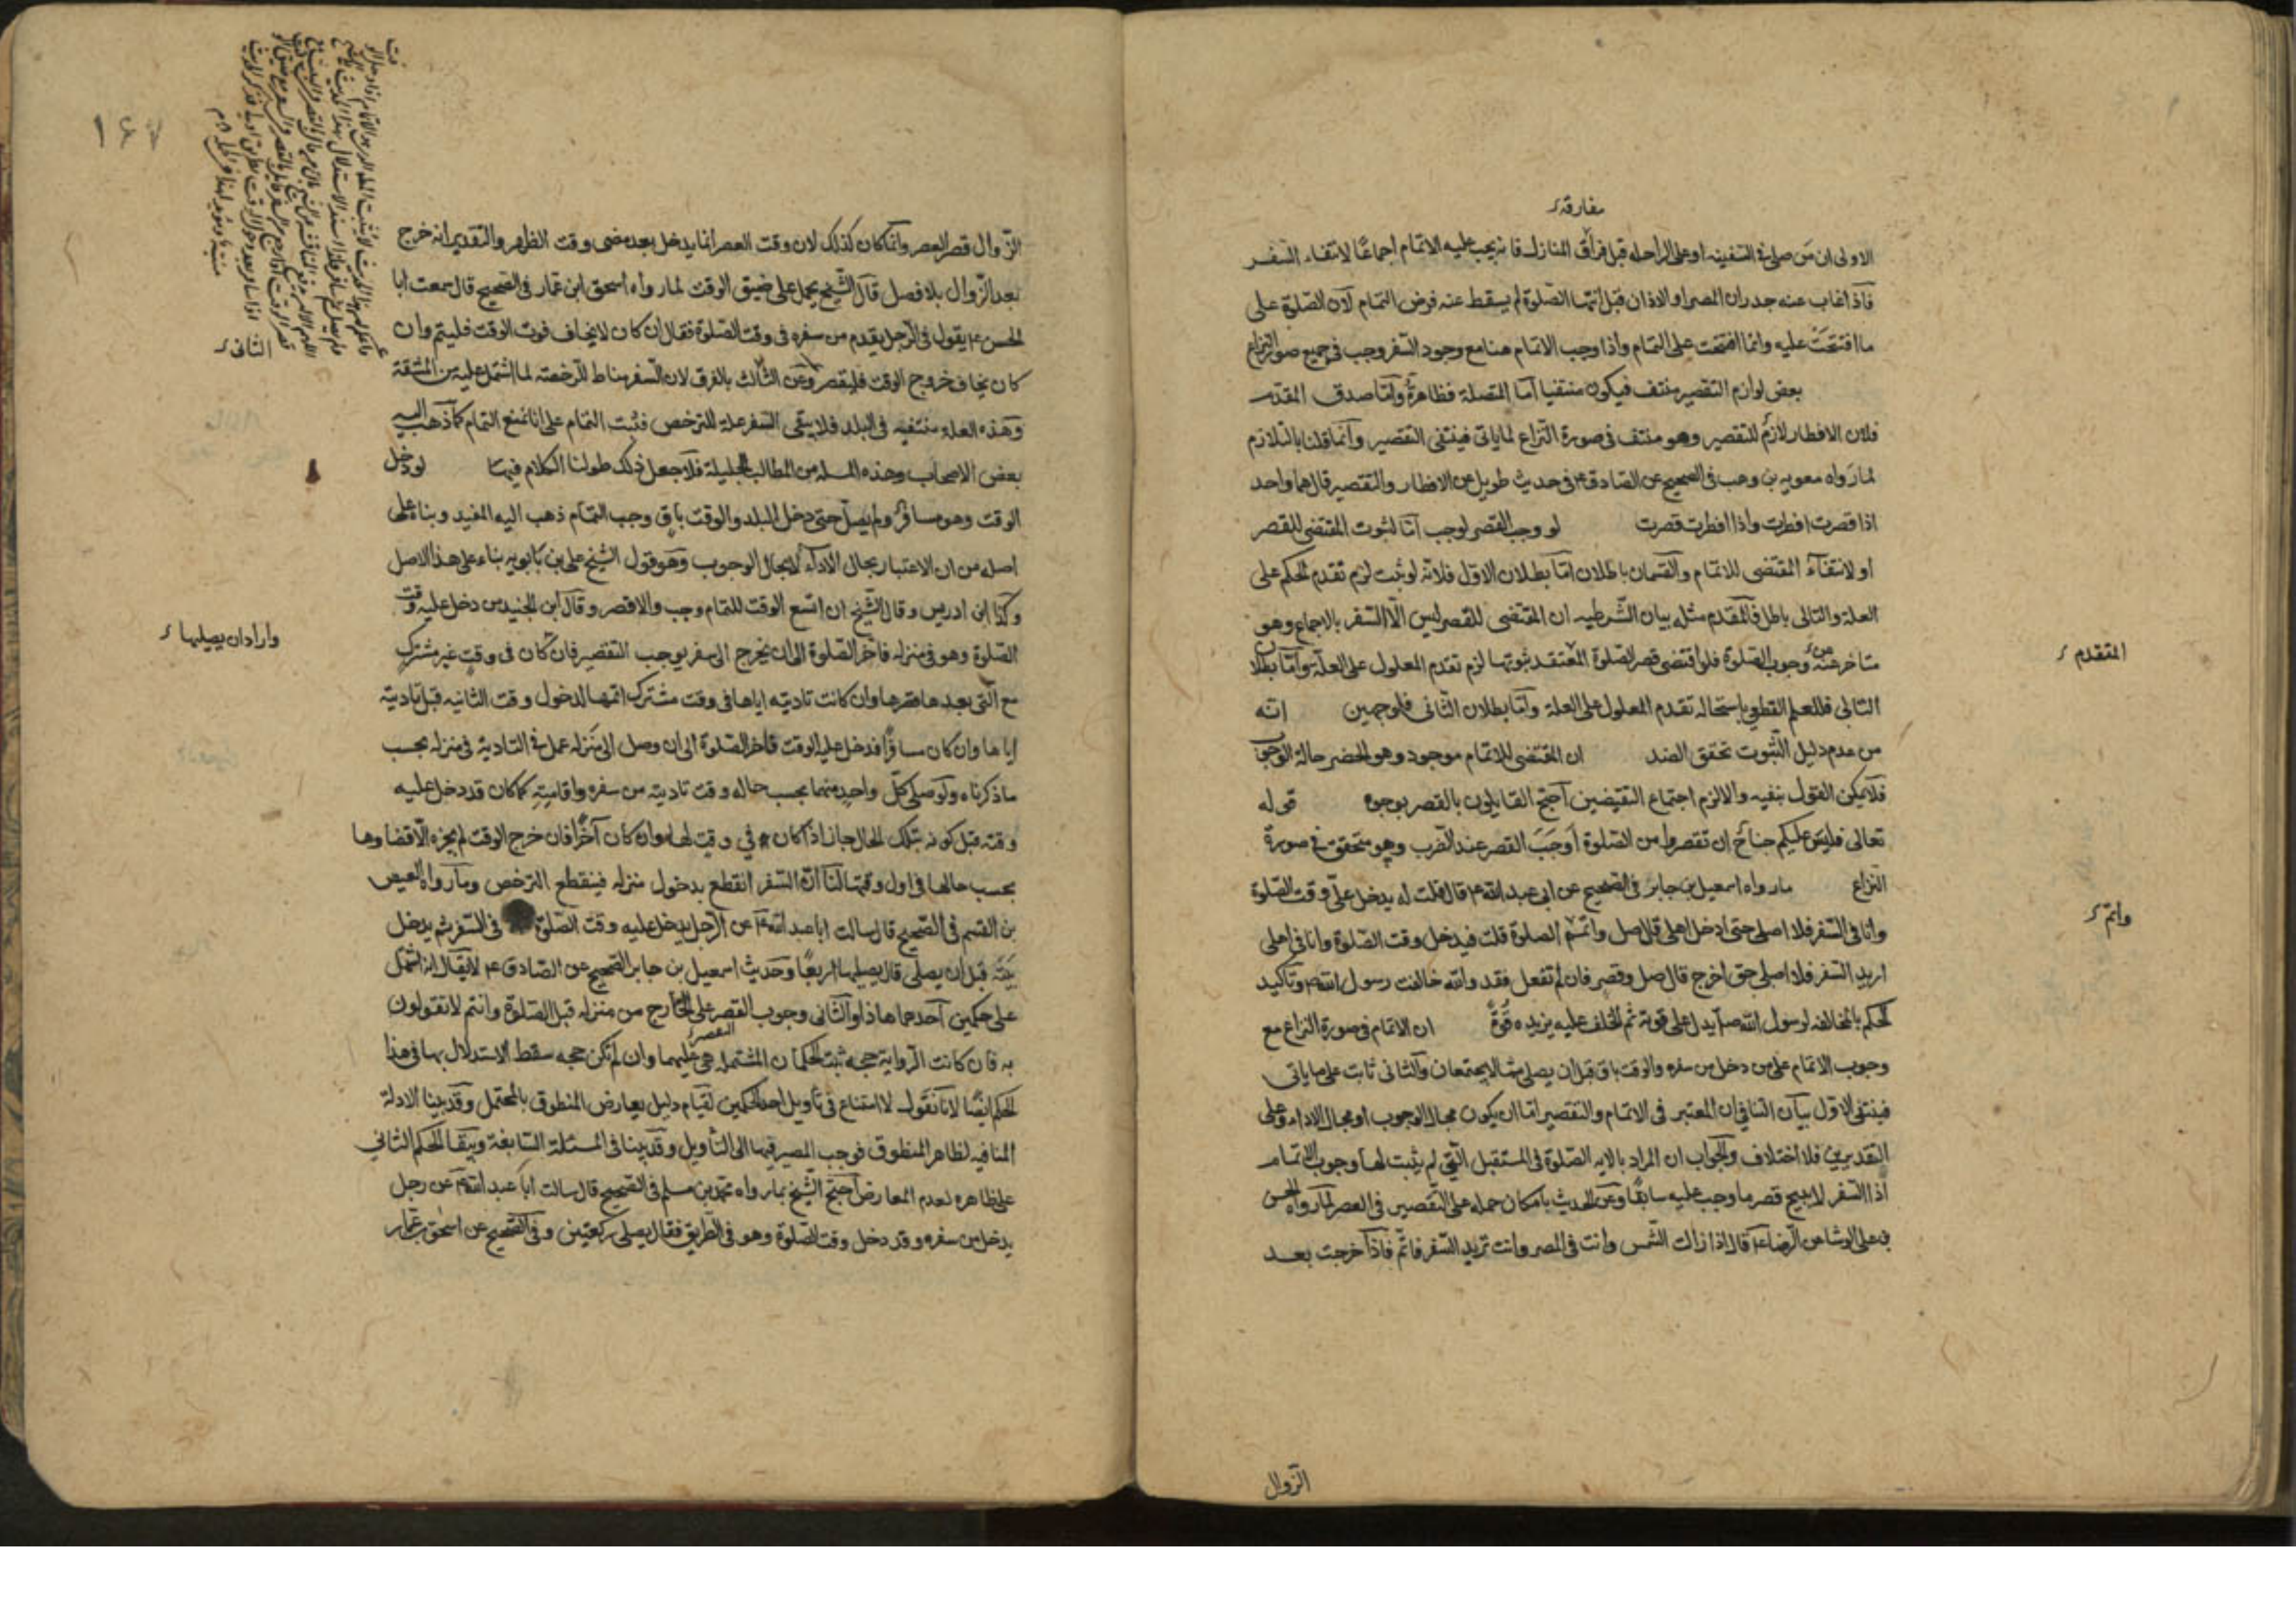 مفارقة
الاولى ان من صلى فى السفينه او على الراحله قبل فراق المنازل فانه يجب عليه الاتمام اجماعًا لانتفاء السفر
فاذا غاب عنه جدران المصر او الاذان قبل اتمها الصلوة لم يسقط عنه فرض التمام لان الصلوة على
ما افتتحت عليه وانما افتتحت على التمام واذا وجب الاتمام هنا مع وجود السفر وجب فى جميع صور النزاع
بعض لوازم التقصير منتف فيكون منتفيا اما المتصلة فظاهرة واما صدق المقدم
فلان الافطار لازم للتقصير وهو منتف فى صورة النزاع لما ياتى فينتفى التقصير وانما قلنا بالتلازم
لما رواه معويه بن وهب فى الصحيح عن الصادق ع فى حديث طويل عن الافطار والتقصير قال هما واحد
اذا قصرت افطرت واذا افطرت قصرت لو وجب القصر لوجب اما لثبوت المقتضى للقصر
او لانتفاء المقتضى للاتمام والقسمان باطلان اما بطلان الاول فلانه لو ثبت لزم تقدم الحكم على
العلة والتالى باطل فالمقدم مثله بيان الشرطيه ان المقتضى للقصر ليس الا السفر بالاجماع وهو
متاخر عن وجوب الصلوة فلو اقتضى قصر الصلوة المتقدم ثبوتها لزم تقدم المعلول على العلة واما بطلان
المتقدم
التالى فللعلم القطعى باستحاله تقدم المعلول على العلة واما بطلان الثانى فلوجهين انه
من عدم دليل الثبوت تحقق الضد ان المقتضى للاتمام موجود وهو الحضر حالة الوجوب
فلا يمكن القول بنفيه والا لزم اجتماع النقيضين احتج القايلون بالقصر بوجوه قوله
تعالى فليس عليكم جناح ان تقصروا من الصلوة اوجب القصر عند الضرب وهو متحقق فى صورة
النزاع ما رواه اسمعيل بن جابر فى الصحيح عن ابى عبد الله ع قال قلت له يدخل على وقت الصلوة
وانا فى السفر فلا اصلى حتى ادخل اهلى قال صل واتم الصلوة قلت فيدخل وقت الصلوة وانا فى اهلى
واتم
اريد السفر فلا اصلى حتى اخرج قال صل وقصر فان لم تفعل فقد والله خالفت رسول الله وتاكيد
الحكم بالمخالفه لرسول الله ص يدل على قوته ثم الحلف عليه يزيده قوة ان الاتمام فى صورة النزاع مع
وجوب الاتمام على من دخل من سفره والوقت باق قبل ان يصلى مما لا يجتمعان والثانى ثابت على ما ياتى
فينتفى الاول بيان التنافى ان المعتبر فى الاتمام والتقصير اما ان يكون بحال الوجوب او بحال الاداء وعلى
التقديرين فلا اختلاف والجواب ان المراد بالايه الصلوة فى المستقبل التى لم يثبت لها وجوب الاتمام
اذ السفر لا يبيح قصر ما وجب عليه سابقًا وعن الحديث بامكان حمله على التقصير فى العصر لما رواه الحسن
بن على الوشا عن الرضا ع قال اذا زالت الشمس وانت فى المصر وانت تريد السفر فاتم فاذا خرجت بعد
الزوال
١٤٧
الزوال قصر العصر وانما كان كذلك لان وقت العصر انما يدخل بعد مضى وقت الظهر والتقدير انه خرج
بعد الزوال بلا فصل قال الشيخ يحمل على ضيق الوقت لما رواه اسحق ابن عمار فى الصحيح قال سمعت ابا
الحسن ع يقول فى الرجل يقدم من سفره فى وقت الصلوة فقال ان كان لا يخاف فوت الوقت فليتم وان
الثانى
كان يخاف خروج الوقت فليقصر وعن الثالث بالفرق لان السفر مناط للرخصة لما اشتمل عليه من المشقة
وهذه العلة منتفيه فى البلد فلا يبقى السفر علة للترخص فثبت التمام على انا نمنع التمام كما ذهب اليه
بعض الاصحاب وهذه المسله من المطالب الجليلة فلاجل ذلك طولنا الكلام فيها لو دخل
الوقت وهو مسافر ولم يصل حتى دخل البلد والوقت باق وجب التمام ذهب اليه المفيد وبناه على
اصله من ان الاعتبار بحال الاداء لا بحال الوجوب وهو قول الشيخ على بن بابويه بناء على هذا الاصل
وكذا ابن ادريس وقال الشيخ ان اتسع الوقت للتمام وجب والا قصر وقال ابن الجنيد من دخل عليه وقت
الصلوة وهو فى منزله فاخر الصلوة الى ان يخرج الى سفر يوجب التقصير فان كان فى وقت غير مشترك
واراد ان يصليها
مع التى بعدها قصرها وان كانت تاديته اياها فى وقت مشترك اتمها لدخول وقت الثانيه قبل تاديته
اياها وان كان مسافرًا فدخل عليه الوقت فاخر الصلوة الى ان وصل الى منزله عمل فى التادية فى منزله بحسب
ما ذكرناه ولو صلى كل واحد منهما بحسب حاله وقت تاديته من سفره واقامته كما كان قد دخل عليه
وقته قبل كونه بتلك الحال جاز اذا كان فى وقت لها وان كان آخرًا فان خرج الوقت لم يجزه الا قضاوها
بحسب حالها فى اول وقتها لنا ان السفر انقطع بدخول منزله فينقطع الترخص وما رواه العيص
بن القسم فى الصحيح قال سالت ابا عبد الله ع عن الرجل يدخل عليه وقت الصلوة فى السفر ثم يدخل
بيته قبل ان يصلى قال يصليها اربعًا وحديث اسمعيل بن جابر الصحيح عن الصادق ع لا يقال انه اشتمل
على حكمين احدهما هذا والثانى وجوب القصر على الخارج من منزله قبل الصلوة وانتم لا تقولون
به فان كانت الرواية حجه ثبت الحكمان المشتمله هى عليهما وان لم تكن حجه سقط الاستدلال بها فى هذا
الحكم ايضًا لانا نقول لا امتناع فى تأويل احد الحكمين لقيام دليل يعارض المنطوق بالمحتمل وقد بينا الادلة
المنافيه لظاهر المنطوق فوجب المصير فيها الى التأويل وقد بينا فى المسئلة السابقة وبقى الحكم الثانى
على ظاهره لعدم المعارض احتج الشيخ بما رواه محمد بن مسلم فى الصحيح قال سالت ابا عبد الله ع عن رجل
يدخل من سفره وقد دخل وقت الصلوة وهو فى الطريق فقال يصلى ركعتين وفى الصحيح عن اسحق بن عمار